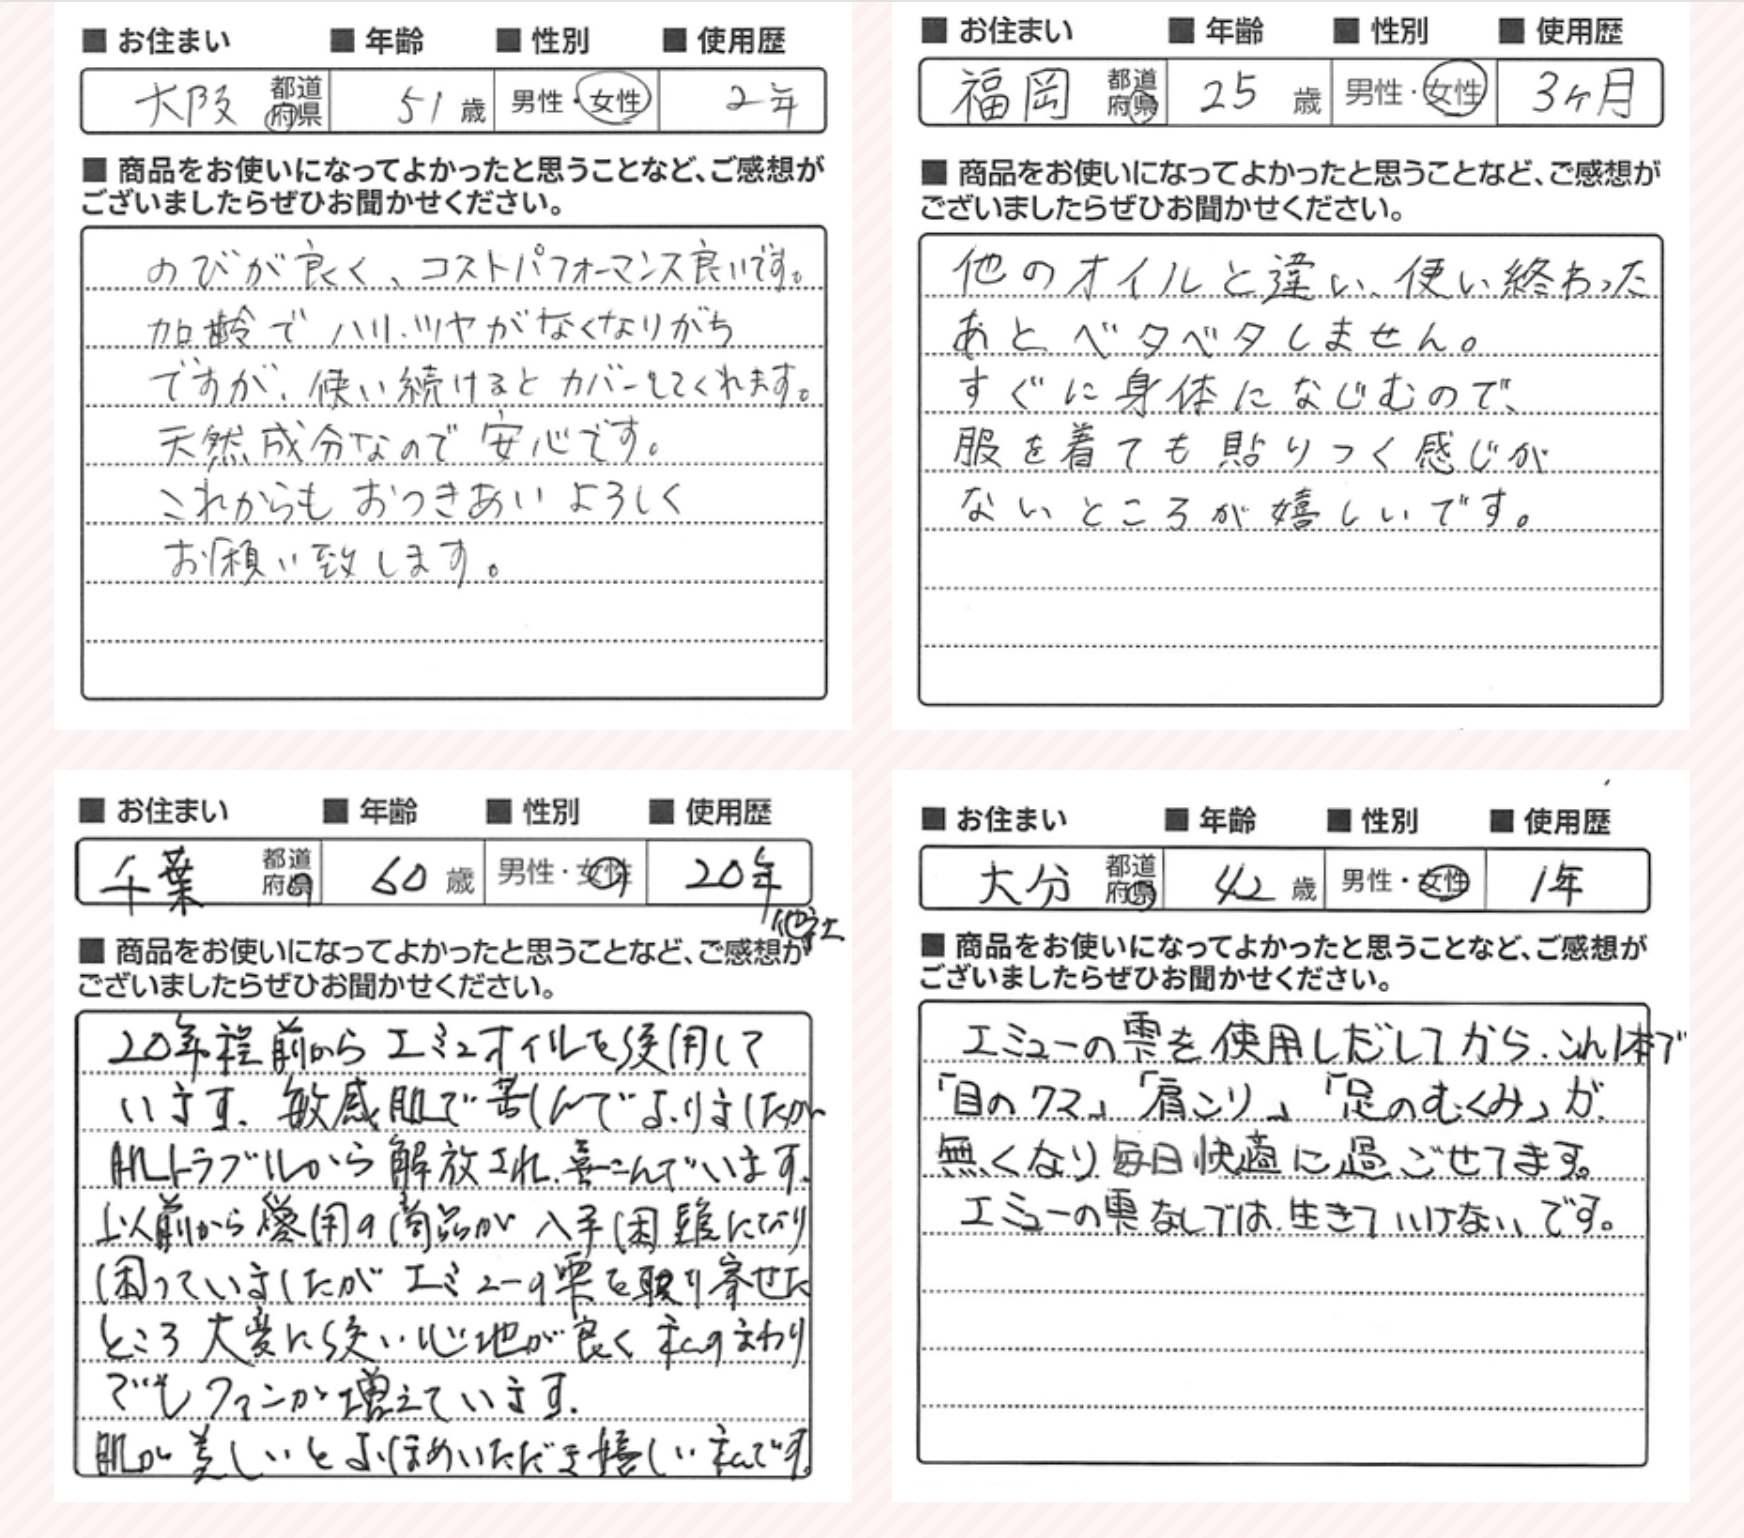 ■ お住まい ■ 年齢 ■ 性別 ■ 使用歴
大阪 都道府県 51 歳 男性・女性 2年
■ 商品をお使いになってよかったと思うことなど、ご感想が
ございましたらぜひお聞かせください。
のびが良く、コストパフォーマンス良いです。
加齢で ハリ、ツヤがなくなりがち
ですが、使い続けると カバーしてくれます。
天然成分なので 安心です。
これからも おつきあい よろしく
お願い致します。
■ お住まい ■ 年齢 ■ 性別 ■ 使用歴
福岡 都道府県 25 歳 男性・女性 3ヶ月
■ 商品をお使いになってよかったと思うことなど、ご感想が
ございましたらぜひお聞かせください。
他のオイルと違い、使い終わった
あと ベタベタしません。
すぐに身体になじむので、
服を着ても貼りつく感じが
ないところが嬉しいです。
■ お住まい ■ 年齢 ■ 性別 ■ 使用歴
千葉 都道府県 60 歳 男性・女性 20年
他社
■ 商品をお使いになってよかったと思うことなど、ご感想が
ございましたらぜひお聞かせください。
20年程前から エミュオイルを使用して
います。敏感肌で苦しんでおりましたが
肌トラブルから解放され、喜こんでいます。
以前から愛用の商品が 入手困難になり
困っていましたが エミューの雫を取り寄せた
ところ 大変に使い心地が良く 私のまわり
でも ファンが増えています。
肌が美しいと おほめいただき嬉しい私です。
■ お住まい ■ 年齢 ■ 性別 ■ 使用歴
大分 都道府県 42 歳 男性・女性 1年
■ 商品をお使いになってよかったと思うことなど、ご感想が
ございましたらぜひお聞かせください。
エミューの雫を使用しだしてから、これ1本で
「目のクマ」「肩こり」「足のむくみ」が
無くなり 毎日快適に過ごせてます。
エミューの雫なしでは、生きていけないです。